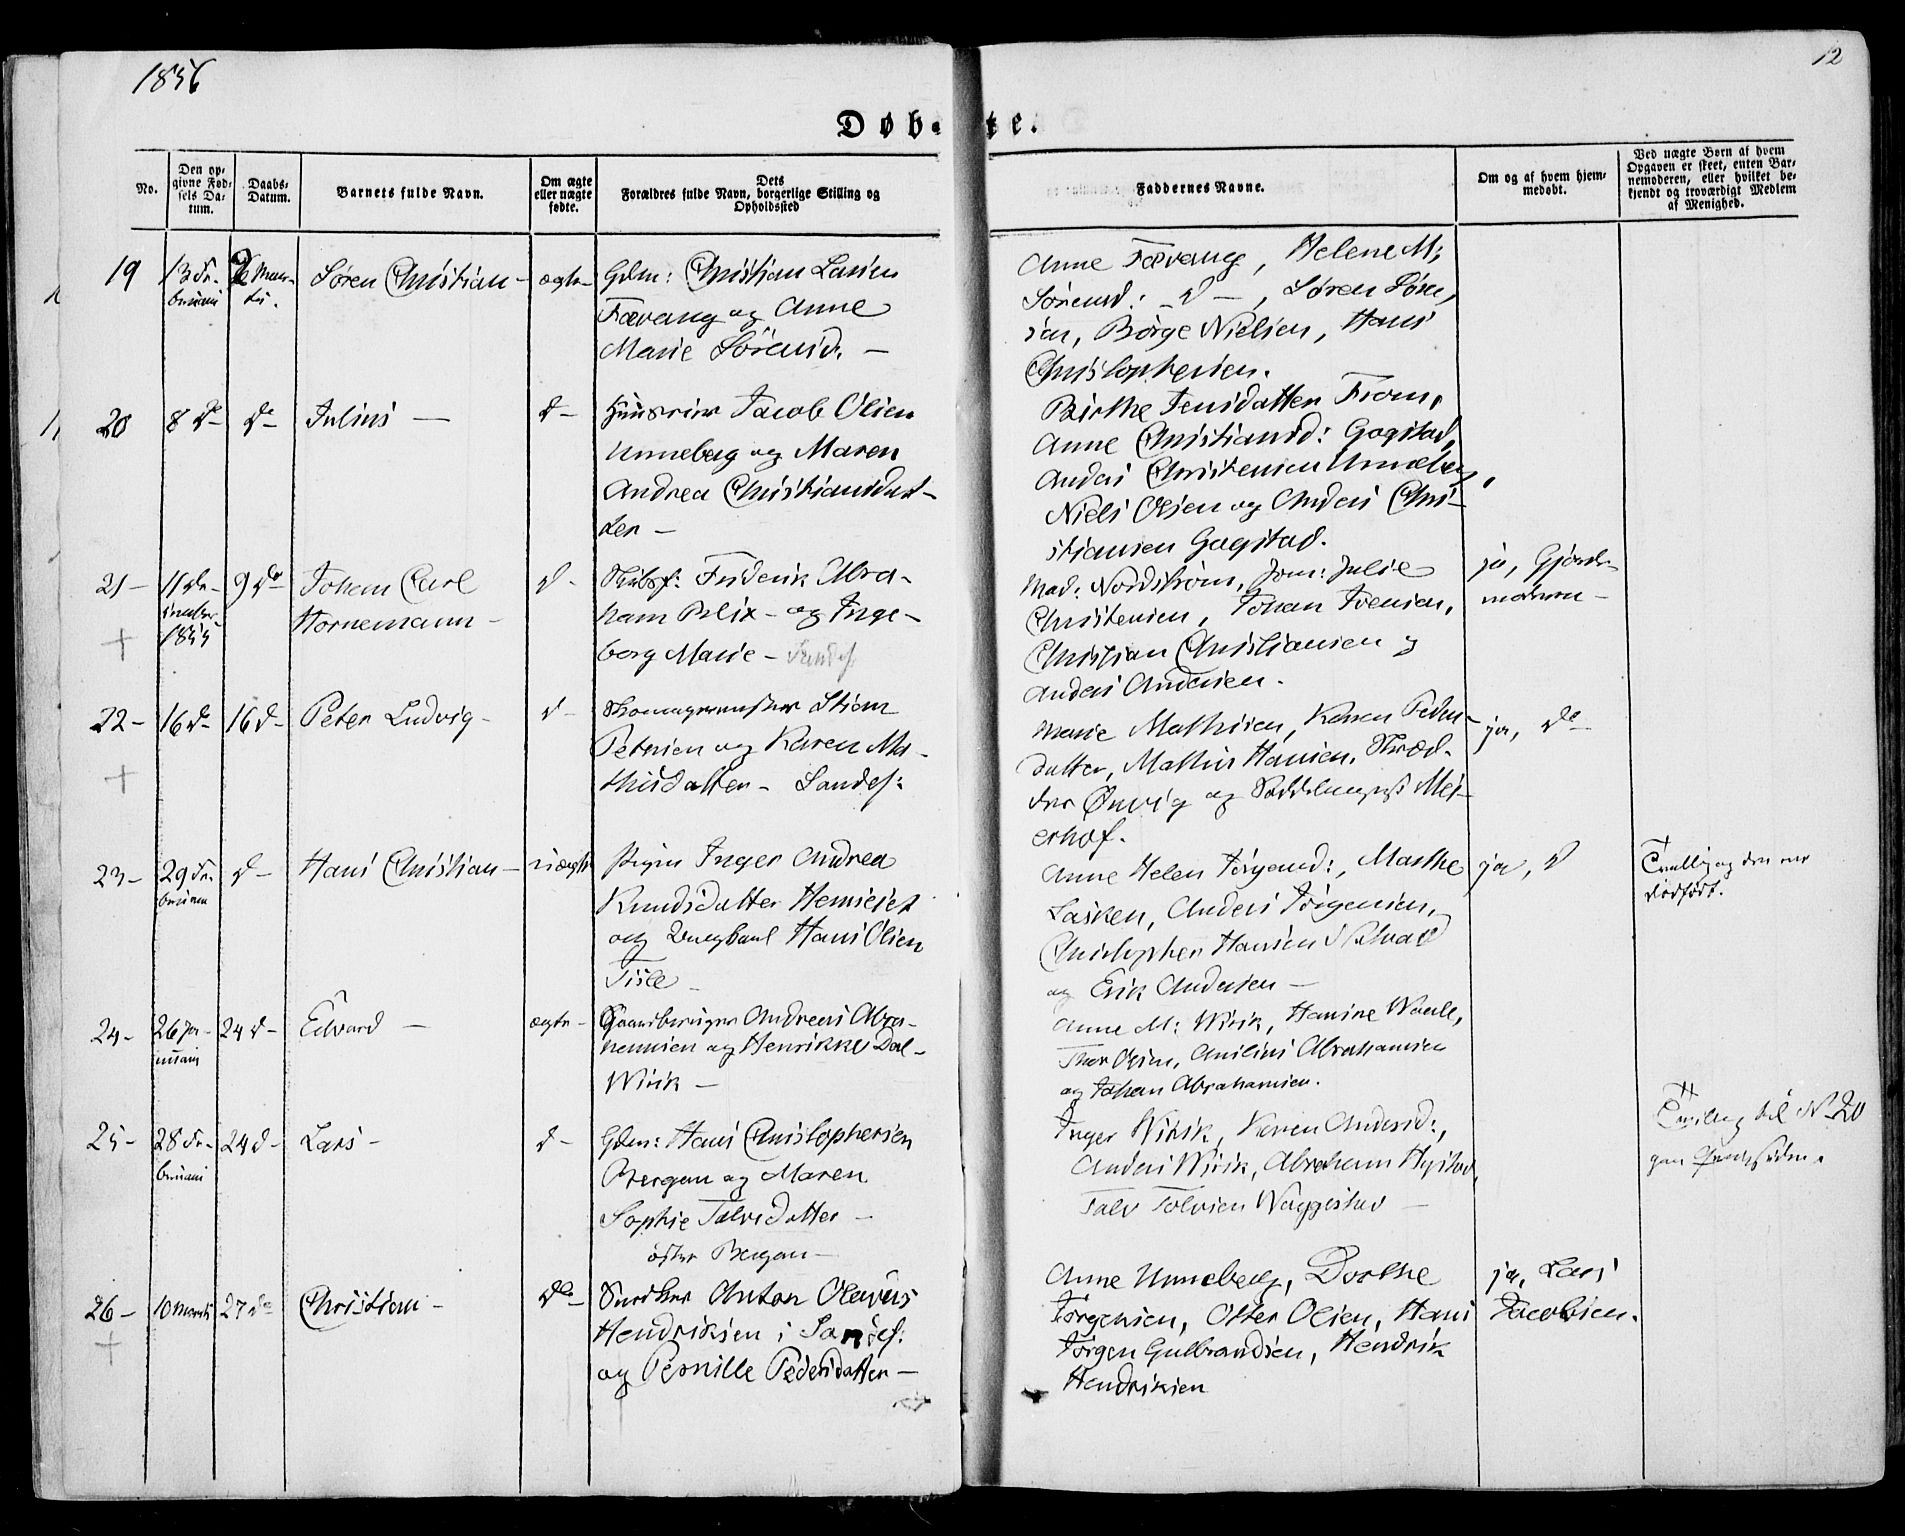 1856
12
Døbte.
No.
Den op-
givne Fød-
sels Da-
tum.
Daabs-
Datum.
Barnets fulde Navn.
Om ægte
eller uægte
fødte.
Dets
Forældres fulde Navn, borgerlige Stilling og
Opholdssted
Faddernes Navne.
Om og af hvem hjem-
medøbt.
Ved uægte Børn af hvem
Opgaven er skeet, enten Bar-
nemoderen, eller hvilket be-
kjendt og troværdigt Medlem
af Menighed.
19
13 Fe-
bruari
2 Mar-
tii.
Søren Christian -
ægte -
Gdm: Christian Larsen
Fævang og Anne
Marie Sørensd. -
Anne Fævang, Helene M:
Sørensd: - d -, Søren Søren-
sen, Børge Nielsen, Hans
Christophersen.
20
8 do
do
Julius -
d -
Huusmin Jacob Olsen
Unneberg og Maren
Andrea Christiansdat-
ter -
Birthe Jensdatter From,
Anne Christiansd: Gogstad,
Anders Christensen Unneberg,
Niels Olsen og Anders Chri-
stiansen Gogstad.
21 -
11 De-
cember
1855
9 do
Johan Carl
Hornemann -
d -
Skibsf: Friderik Abra-
ham Blix - og Inge-
borg Marie - Sandef.
Mad: Nordstrøm, Jom: Julie
Christensen, Johan Svensen,
Christian Christiansen og
Anders Andersen.
ja, Gjorde-
moderen -
22 -
16 d -
16 d -
Peter Ludvig -
d -
Skomagermester Stiom
Petersen og Karen Ma-
thisdatter - Sandef:
Marie Mathisen, Karen Peders-
datter, Mathis Hansen, Skræd-
der Ørvig og Sadelmagers Mei-
erhof.
ja, do -
23 -
29 Fe-
bruari
d -
Hans Christian -
uægte
Pigen Inger Andrea
Knudsdatter
og Ungkarl Hans Olsen
Anne Helen Jørgensd:, Marthe
Larsen, Anders Jørgensen,
Christopher Hansen
og Erik Andersen -
ja, d
Tvilling den ene
dødført.
24 -
26 Ja-
nuari
24 d -
Edvard -
ægte -
Gaardbruger Andreas Abra-
hamsen og Henrikke Dal-
Wirik -
Anne M: Wirik, Hanine
Thor Olsen, Abrahamsen
og Johan Abrahamsen.
25 -
28 Fe-
bruari
24 d -
Lars -
d -
Gdm: Hans Christophersen
Bergan og Maren
Sophie Talvsdatter -
øster Bergan -
Inger Wirik, Karen Andersd:,
Anders Wirik, Abraham
Talv Talvsen
Tvilling til No 20
26 -
10 Marti
27 do
Christian -
do -
Snedker Anton Olavus
Hendriksen i Sandef:
og Pernille Pedersdatter -
Anne Unneberg, Dorthe
Jørgensen, Otter Olsen, Hans
Jørgen Gulbrandsen, Hendrik
Hendriksen
ja, Lars
Jacobsen.